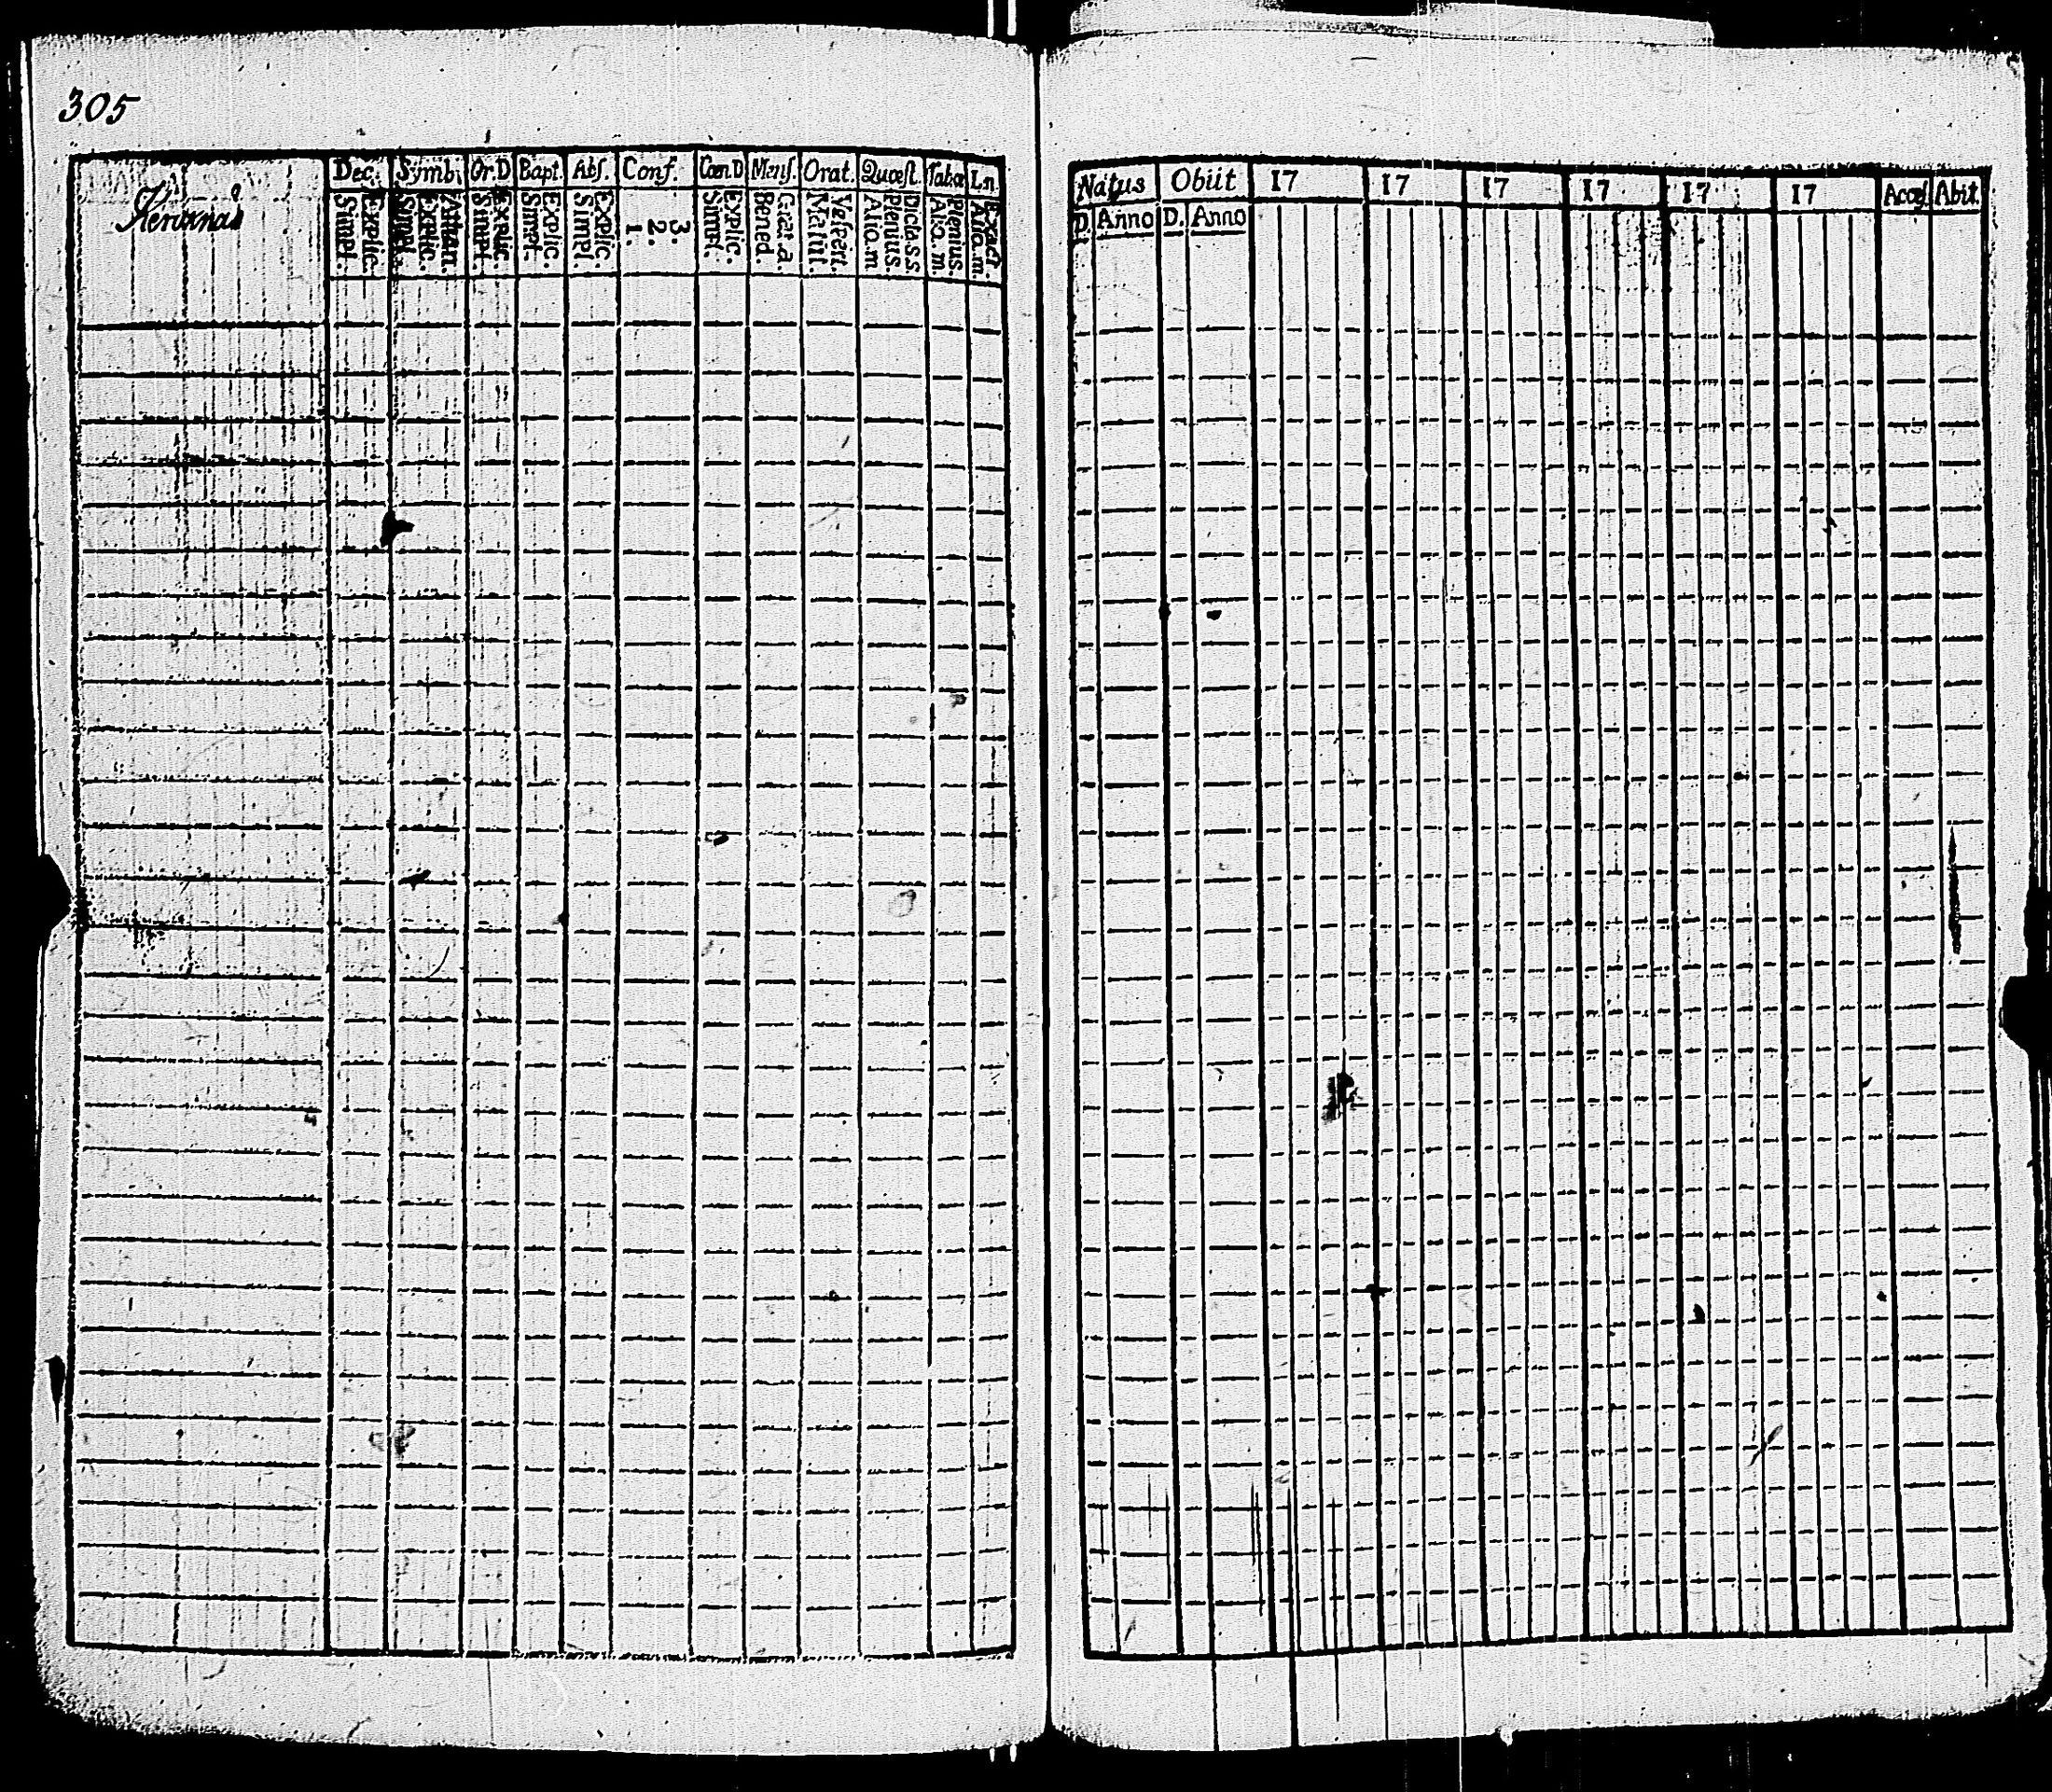 305
Dec. Symb. Or.D Bapt. Abſ. Conf. Cœn.D Menſ. Orat. Quœſt. Tabœ Ln.
Explic. Simpl. Athan. Explic. Simpl. Explic. Simpl. Explic. Simpl. Explic. Simpl. 3. 2. 1. Explic. Simpl. Grat.a. Bened. Veſpert. Matut. Dicta.s.s. Plenius. Alio.m. Plenius. Alio.m. Exact. Alio.m.
Natus Obiit 17 17 17 17 17 17 Acceſ. Abit.
D. Anno D. Anno